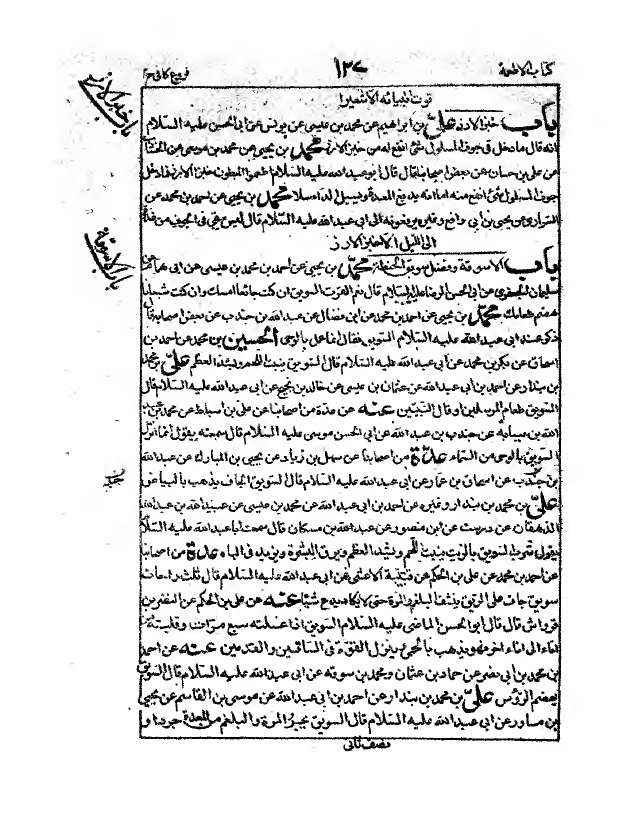 كتاب الاطعمة ١٢٧ فروع كافى ج٢
قوت انبيائه الا شعيرا
باب خبز الارز على بن ابراهيم عن محمد بن عيسى عن يونس عن ابى الحسن عليه السلام
انه قال ما دخل فى جوف المسلول شئ انفع له من خبز الارز محمد بن يحيى عن محمد بن موسى عن الخشاب
عن على بن حسان عن بعض اصحابنا قال قال ابو عبد الله عليه السلام اطعموا المبطون خبز الارز فما دخل
جوف المسلول شئ انفع منه اما انه يدبغ المعدة ويسل الداء سلا محمد بن يحيى عن احمد بن محمد عن
السيارى عن يحيى بن ابى رافع وغيره يرفعونه الى ابى عبد الله عليه السلام قال ليس يبقى فى الجوف من غدوة
الى الليل الا خبز الارز
باب الاسوقة وفضل سويق الحنطة محمد بن يحيى عن احمد بن محمد بن عيسى عن ابى همام عن
سليمان الجعفرى عن ابى الحسن الرضا عليه السلام قال نعم القوت السويق ان كنت جائعا امسك وان كنت شبعانا
هضم طعامك محمد بن يحيى عن احمد بن محمد عن ابن فضال عن عبد الله بن جندب عن بعض اصحابه قال
ذكر عند ابى عبد الله عليه السلام السويق فقال انما عمل بالوحى الحسين بن محمد عن احمد بن
اسحاق عن بكر بن محمد عن ابى عبد الله عليه السلام قال السويق ينبت اللحم ويشد العظم على بن محمد
بن بندار عن احمد بن ابى عبد الله عن عثمان بن عيسى عن خالد بن نجيح عن ابى عبد الله عليه السلام قال
السويق طعام المرسلين او قال النبيين عنه عن عدة من اصحابنا عن على بن اسباط عن محمد بن عبد
الله بن سيابة عن جندب بن عبد الله عن ابى الحسن موسى عليه السلام قال سمعته يقول انما انزل
السويق بالوحى من السماء عدة من اصحابنا عن سهل بن زياد عن يحيى بن المبارك عن عبد الله
بن جندب عن اسحاق بن عمار عن ابى عبد الله عليه السلام قال السويق الجاف يذهب بالبياض
على بن محمد بن بندار وغيره عن احمد بن ابى عبد الله عن محمد بن عيسى عن عبيد الله بن عبد الله
الدهقان عن درست عن ابن منصور عن عبد الله بن مسكان قال سمعت ابا عبد الله عليه السلام
يقول شربة السويق بالزيت ينبت اللحم ويشد العظم ويرق البشرة ويزيد فى الباه عدة من اصحابنا
عن احمد بن محمد عن على بن الحكم عن قتيبة الاعشى عن ابى عبد الله عليه السلام قال ثلث راحات
سويق جاف على الريق ينشف البلغم والمرة حتى لا يكاد يدع شيئا عنه عن على بن الحكم عن النضر بن
قرواش قال قال ابو الحسن الماضى عليه السلام السويق اذا غسلته سبع مرات وقلبته من
اناء الى اناء اخر فهو يذهب بالحمى وينزل القوة فى الساقين والقدمين عنه عن احمد
بن محمد بن ابى نصر عن حماد بن عثمان ومحمد بن سوقة عن ابى عبد الله عليه السلام قال السويق
يهضم الرؤس على بن محمد بن بندار عن احمد بن ابى عبد الله عن موسى بن القاسم عن يحيى
بن مساور عن ابى عبد الله عليه السلام قال السويق يجرد المرة والبلغم من المعدة جردا و
نصف ثانى
باب خبز الارز
باب الاسوقة